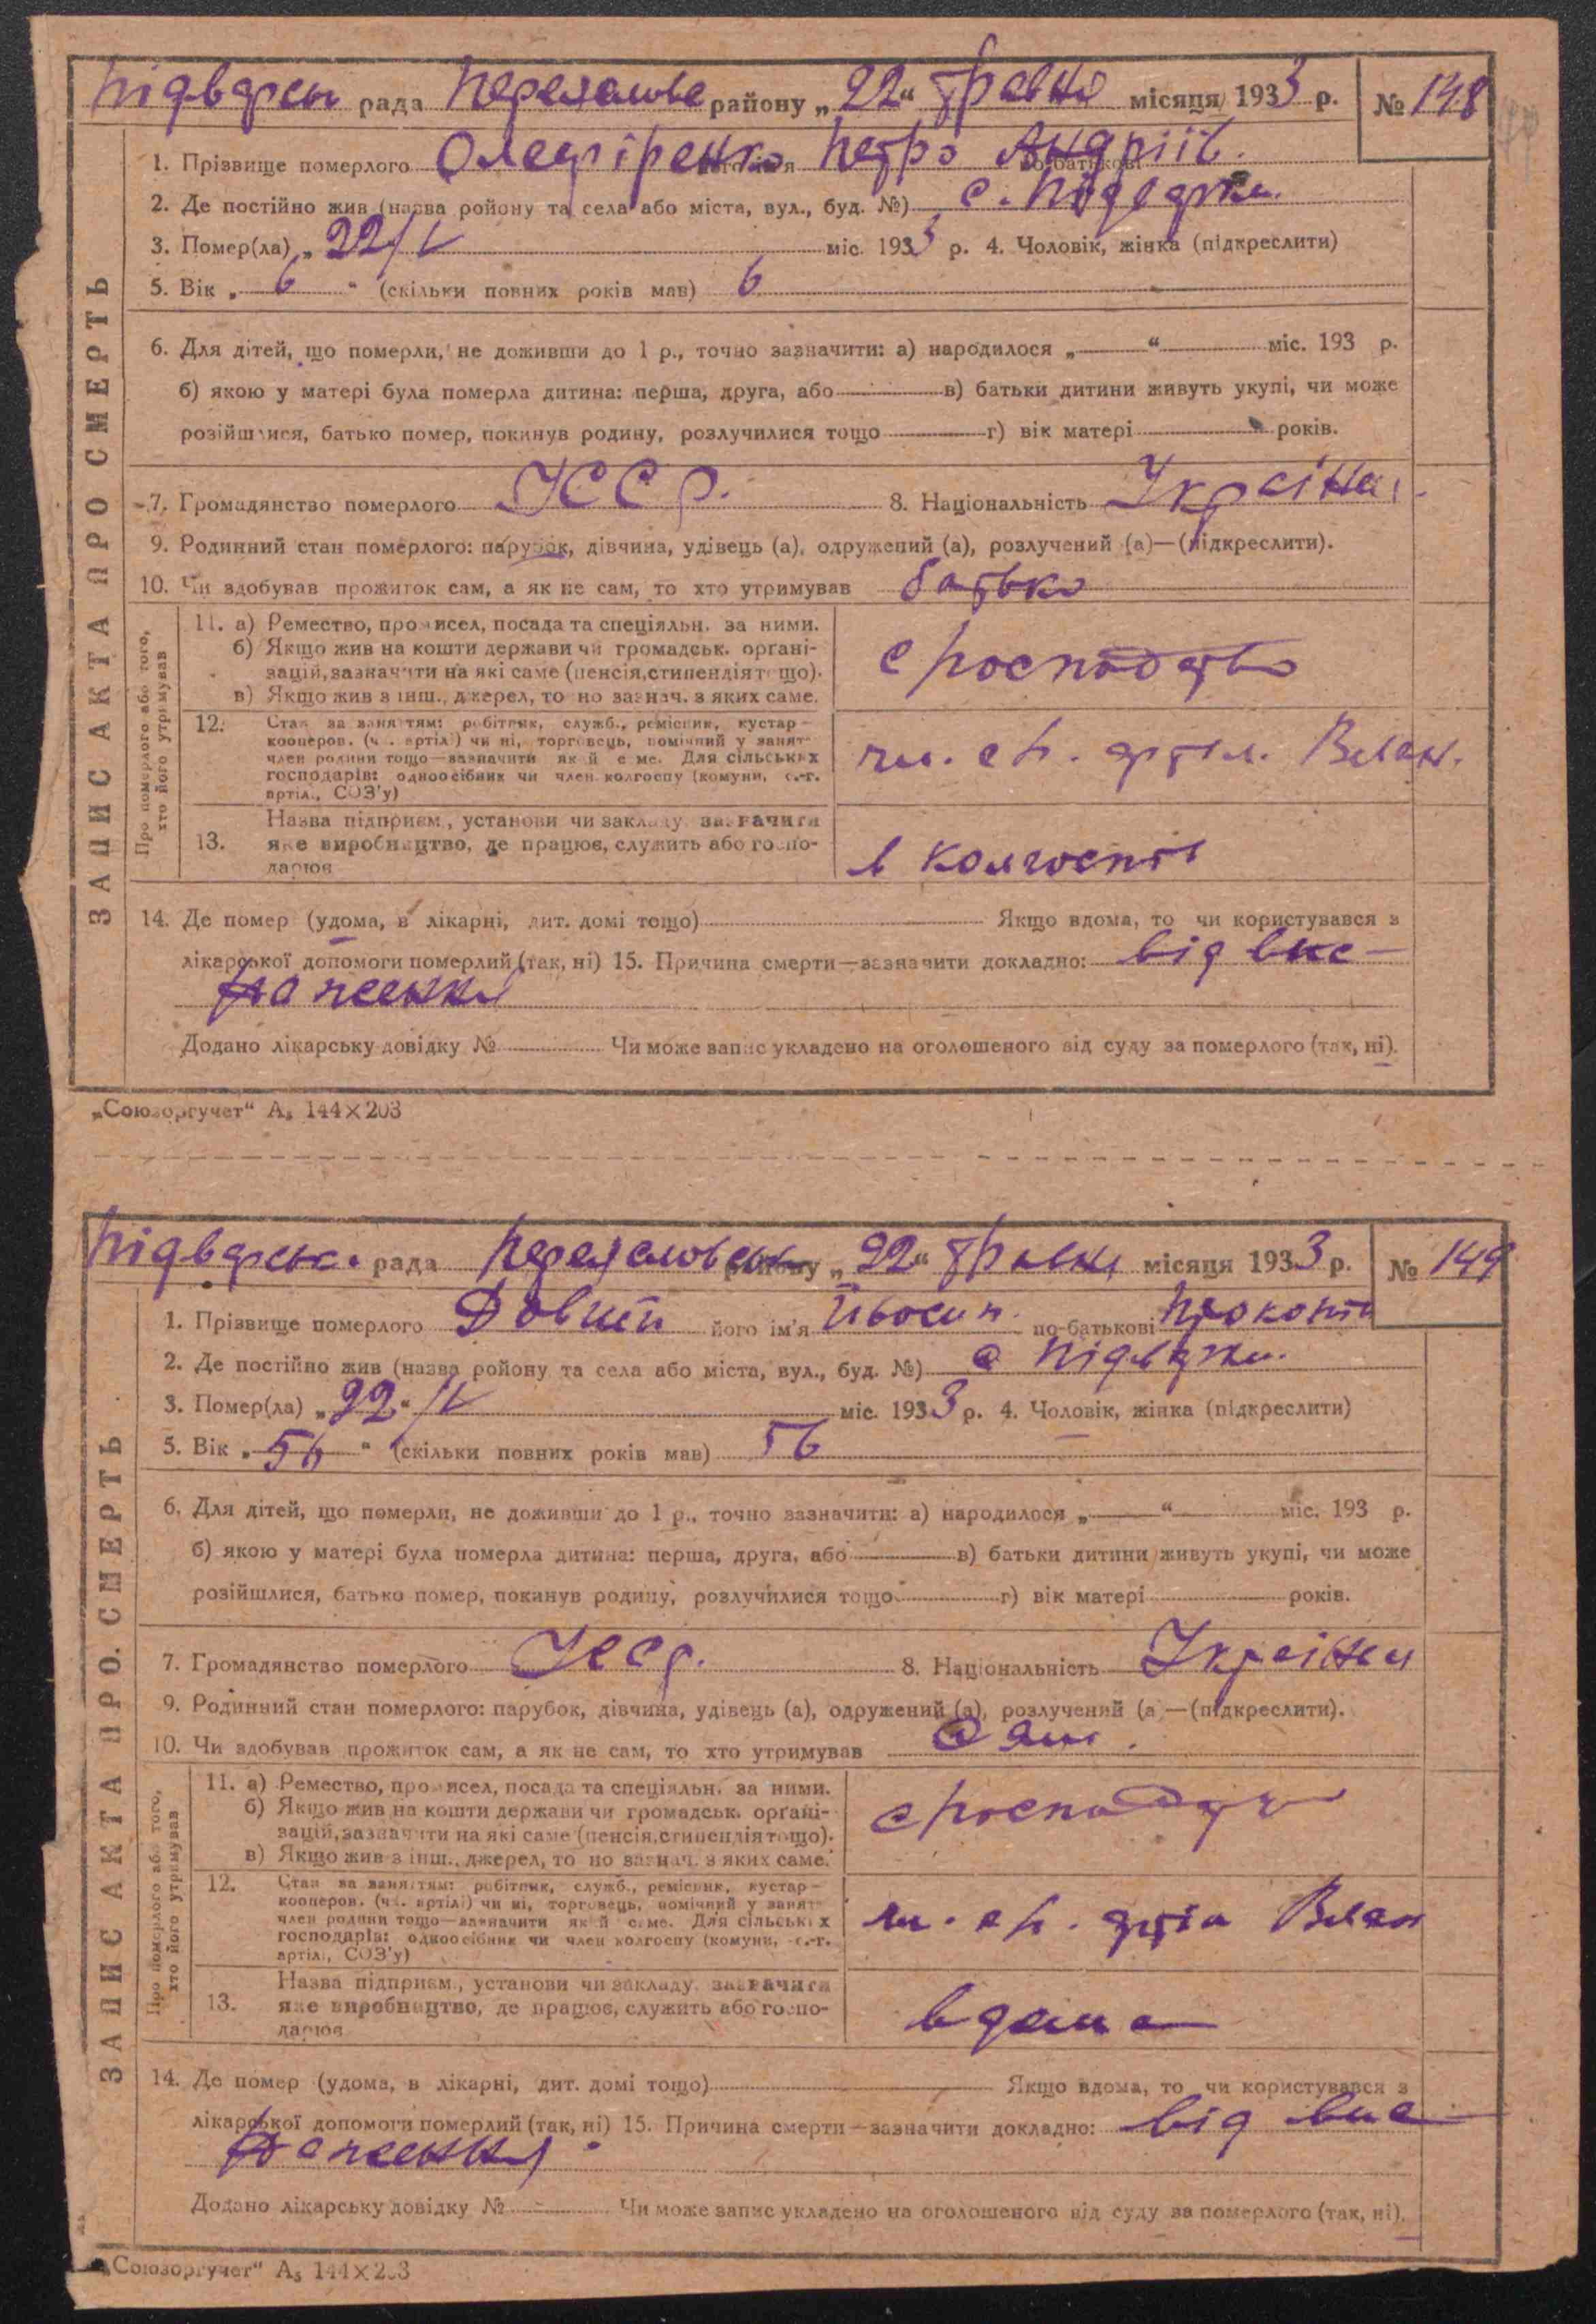 Підварськ рада Переяславс району „22“ травня місяця 1933 р. № 148
ЗАПИС АКТА ПРО СМЕРТЬ
1. Прізвище померлого Олефіренко Петро Андріїв.
2. Де постійно жив (назва ройону та села або міста, вул., буд. №) с. Підварки
3. Помер(ла) „22/V міс. 1933 р. 4. Чоловік, жінка (підкреслити)
5. Вік „6“ (скільки повних років мав) 6
6. Для дітей, що померли, не доживши до 1 р., точно зазначити: а) народилося „ “ міс. 193 р.
б) якою у матері була померла дитина: перша, друга, або в) батьки дитини живуть укупі, чи може
розійшлися, батько помер, покинув родину, розлучилися тощо г) вік матері років.
7. Громадянство померлого УССР. 8. Національність Україна.
9. Родинний стан померлого: парубок, дівчина, удівець (а), одружений (а), розлучений (а)—(підкреслити).
10. Чи здобував прожиток сам, а як не сам, то хто утримував батько
Про померлого або того, хто його утримував
11. а) Ремество, промисел, посада та спеціяльн. за ними.
б) Якщо жив на кошти держави чи громадськ. органі-
зацій, зазначити на які саме (пенсія, стипендія тощо).
в) Якщо жив з інш., джерел, то но зазнач. з яких саме.
с господарство
12. Стан за заняттям: робітник, служб., ремісник, кустар—
кооперов. (чл. артілі) чи ні, торговець, помічний у занят-
член родини тощо—зазначити який саме. Для сільських
господарів: одноосібник чи член колгоспу (комуни, с.-г.
артіл., СОЗ'у)
чл. с г. артіл.
13. Назва підприєм., установи чи закладу, зазначити
яке виробництво, де працює, служить або госпо-
дарює
в колгоспі
14. Де помер (удома, в лікарні, дит. домі тощо) Якщо вдома, то чи користувався з
лікарської допомоги померлий (так, ні) 15. Причина смерти—зазначити докладно: від вис-
наження
Додано лікарську довідку № Чи може запис укладено на оголошеного від суду за померлого (так, ні).
„Союзоргучет“ А₅ 144×203
Підварськ. рада Переяславськ району „22“ травня місяця 1933 р. № 149
ЗАПИС АКТА ПРО СМЕРТЬ
1. Прізвище померлого Довгий його ім'я Йвосип по-батькові Прокопи
2. Де постійно жив (назва ройону та села або міста, вул., буд. №) с Підварки.
3. Помер(ла) „22“/V міс. 1933 р. 4. Чоловік, жінка (підкреслити)
5. Вік „56“ (скільки повних років мав) 56
6. Для дітей, що померли, не доживши до 1 р., точно зазначити: а) народилося „ “ міс. 193 р.
б) якою у матері була померла дитина: перша, друга, або в) батьки дитини живуть укупі, чи може
розійшлися, батько помер, покинув родину, розлучилися тощо г) вік матері років.
7. Громадянство померлого УССР. 8. Національність Українец
9. Родинний стан померлого: парубок, дівчина, удівець (а), одружений (а), розлучений (а)—(підкреслити).
10. Чи здобував прожиток сам, а як не сам, то хто утримував сам.
Про померлого або того, хто його утримував
11. а) Ремество, промисел, посада та спеціяльн. за ними.
б) Якщо жив на кошти держави чи громадськ. органі-
зацій, зазначити на які саме (пенсія, стипендія тощо).
в) Якщо жив з інш., джерел, то но зазнач. з яких саме.
с господар
12. Стан за заняттям: робітник, служб., ремісник, кустар—
кооперов. (чл. артілі) чи ні, торговець, помічний у занят-
член родини тощо—зазначити який саме. Для сільських
господарів: одноосібник чи член колгоспу (комуни, с.-г.
артіл., СОЗ'у)
чл. с г. артіл
13. Назва підприєм., установи чи закладу, зазначити
яке виробництво, де працює, служить або госпо-
дарює
вдома
14. Де помер (удома, в лікарні, дит. домі тощо) Якщо вдома, то чи користувався з
лікарської допомоги померлий (так, ні) 15. Причина смерти—зазначити докладно: від вис
наження
Додано лікарську довідку № Чи може запис укладено на оголошеного від суду за померлого (так, ні).
„Союзоргучет“ А₅ 144×203